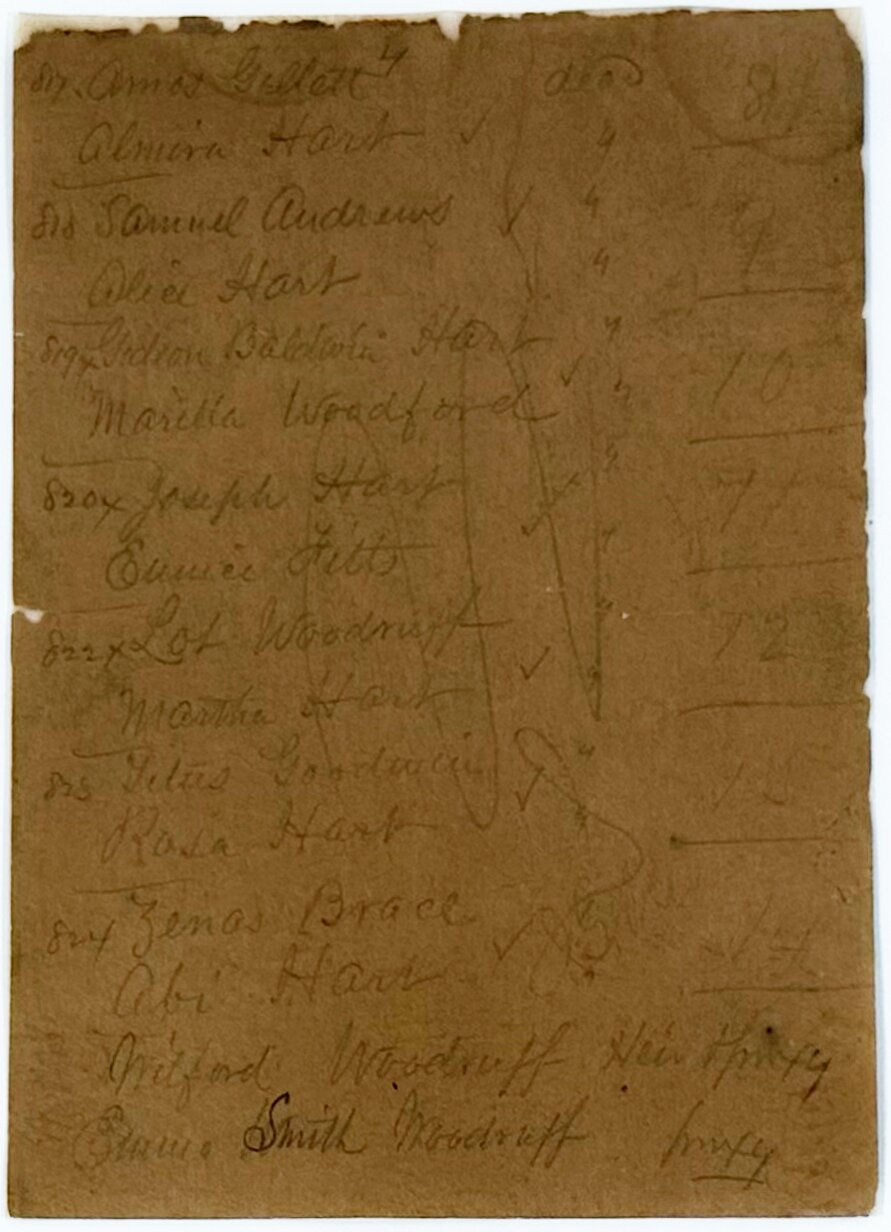 817. Amos Gillett " dead
Almira Hart ✓ "
818 Samuel Andrews ✓ "
Alice Hart "
819x Gideon Baldwin Hart "
Maretta Woodford ✓ " 10
820x Joseph Hart "
Eunice Fitts ✓ " 11
822x Lot Woodruff "
Martha Hart ✓ " 12
823 Titus Goodwin "
Rosa Hart ✓ " 13
824 Zenas Brace "
Abi Hart ✓ "
Wilford Woodruff Heir & proxy
Emma Smith Woodruff proxy